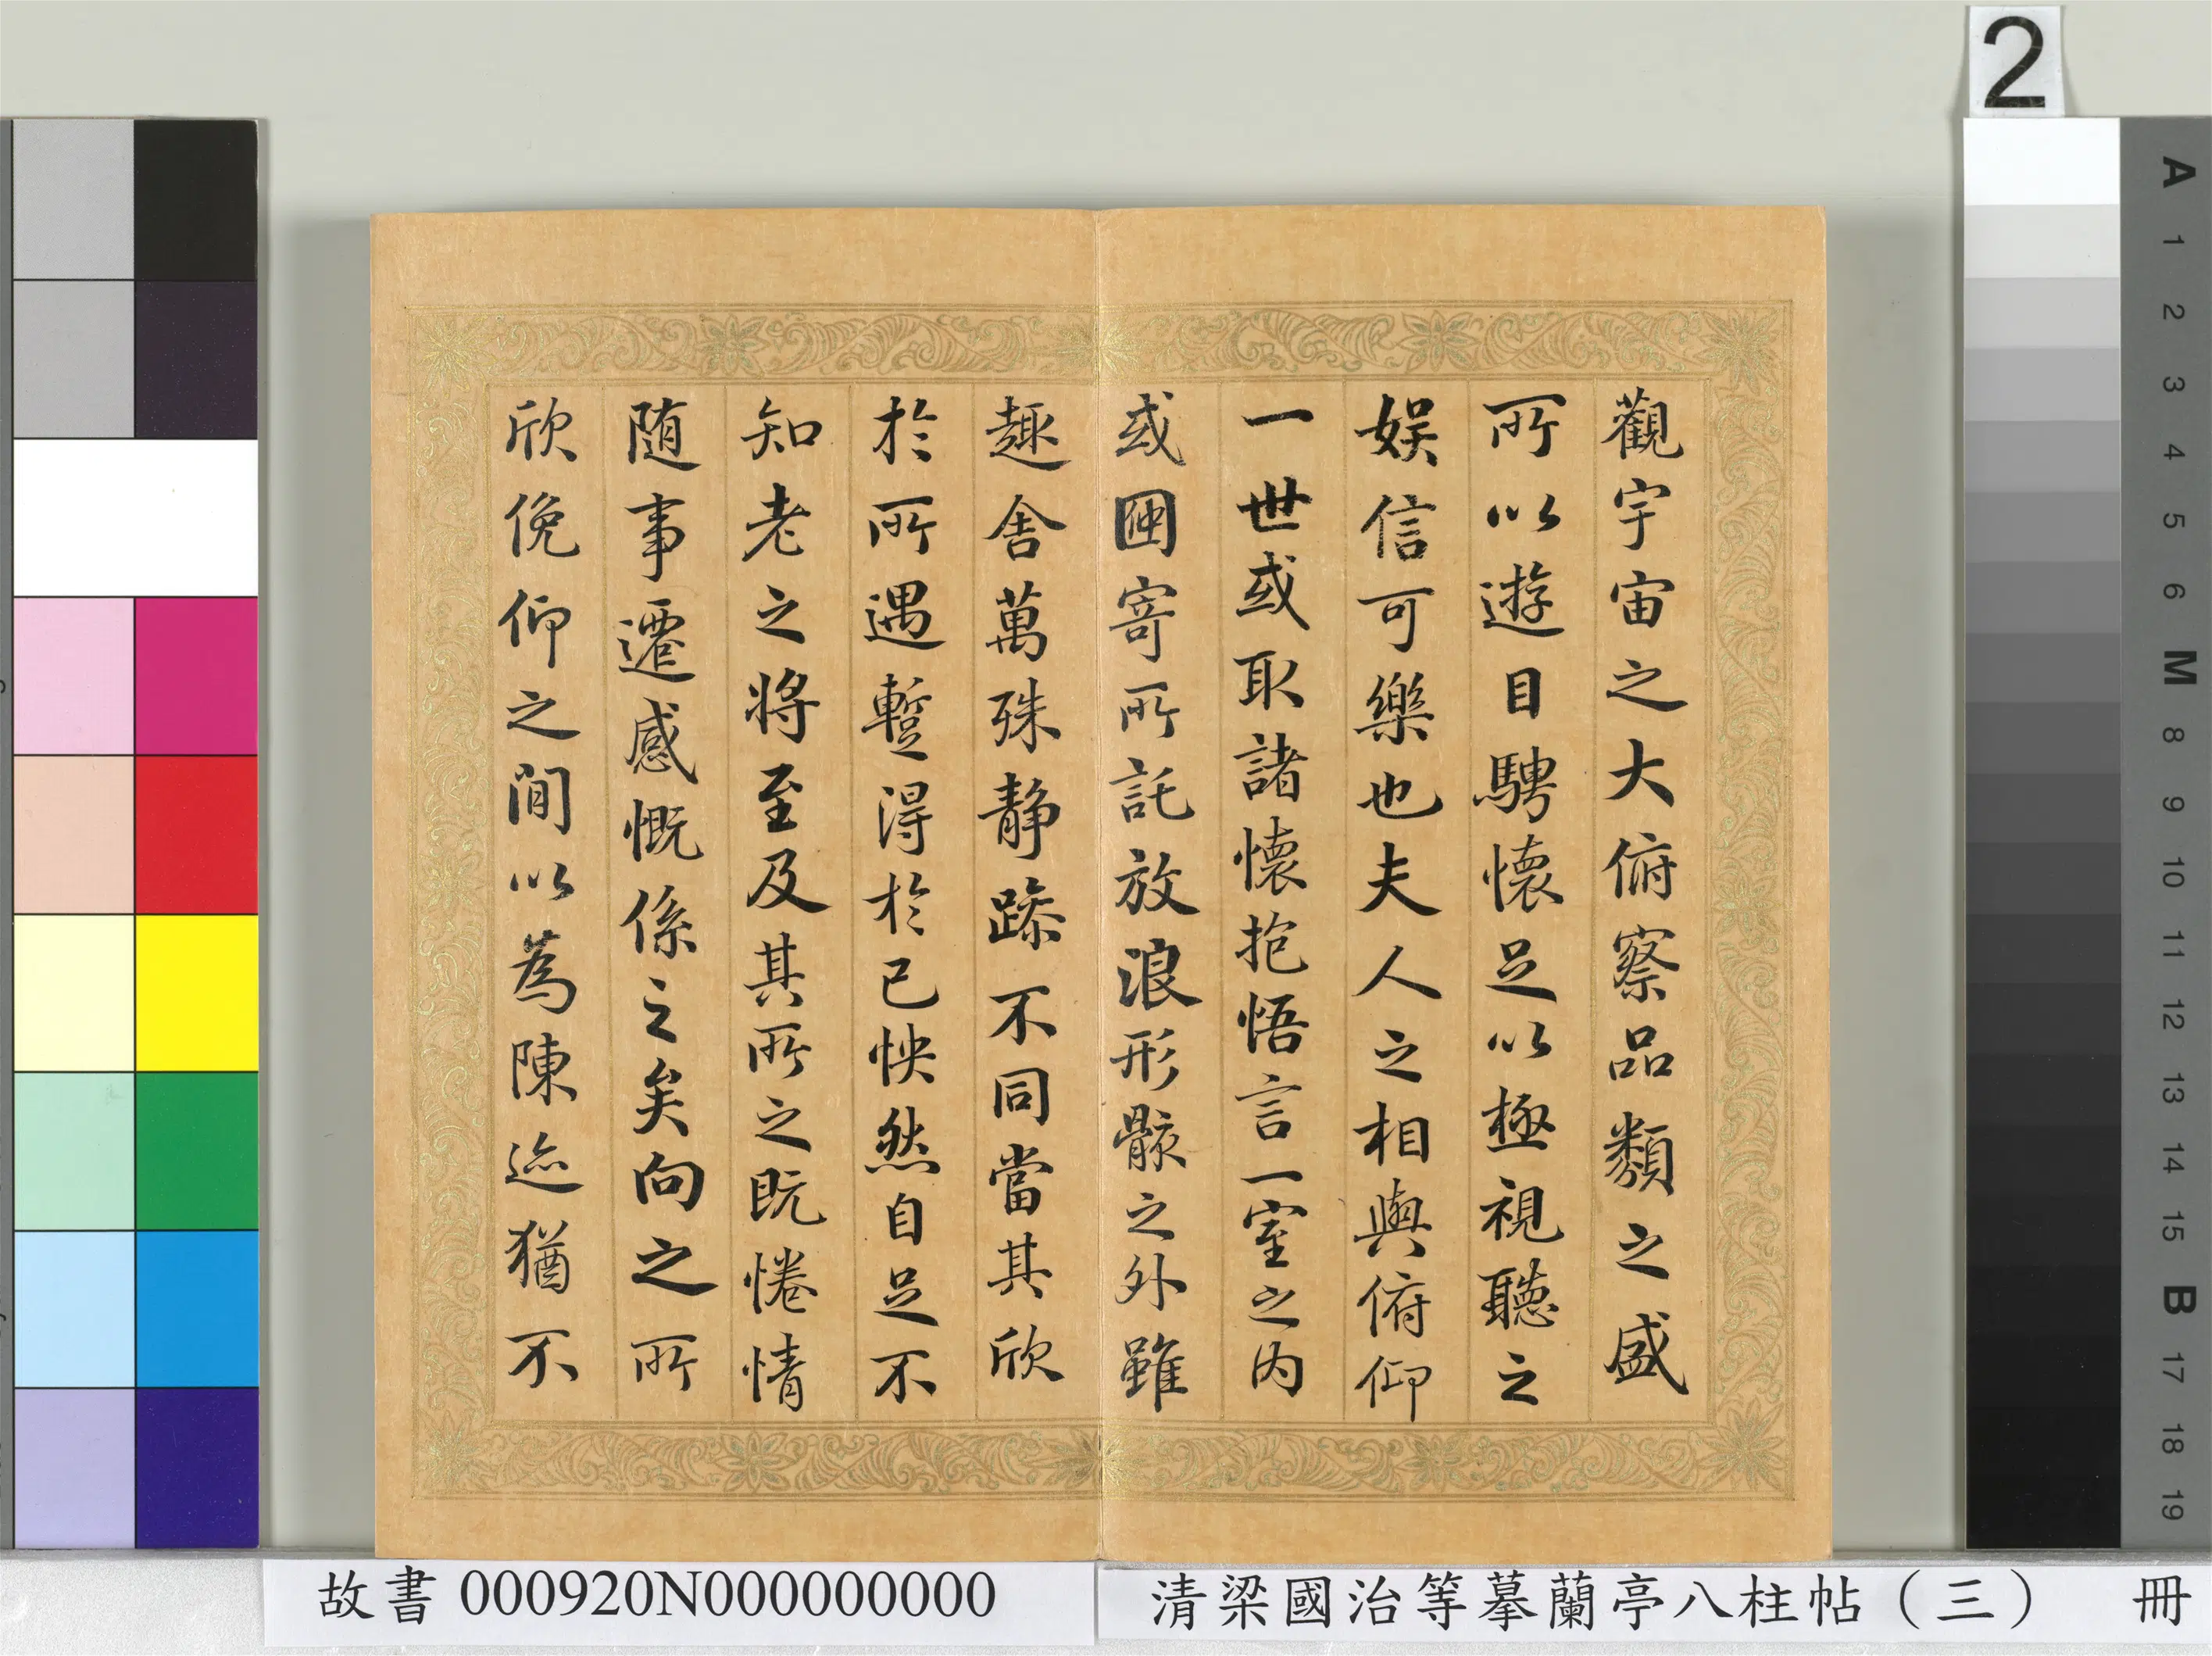 2
觀宇宙之大俯察品類之盛
所以遊目騁懷足以極視聽之
娛信可樂也夫人之相與俯仰
一世或取諸懷抱悟言一室之內
或因寄所託放浪形骸之外雖
趣舍萬殊靜躁不同當其欣
於所遇蹔得於己怏然自足不
知老之將至及其所之既惓情
随事遷感慨係之矣向之所
欣俛仰之閒以為陳迹猶不
故書 000920N000000000
清梁國治等摹蘭亭八柱帖（三） 冊
A
1
2
3
4
5
6
M
8
9
10
11
12
13
14
15
B
17
18
19